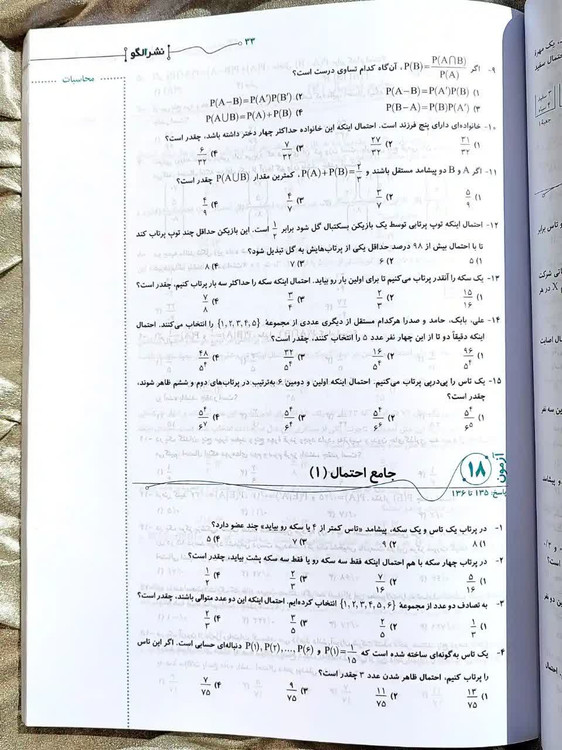 نشر الگو ۳۳
محاسبات
۹- اگر P(B)=P(A∩B)/P(A)، آن‌گاه کدام تساوی درست است؟
۱) P(A−B)=P(A′)P(B) ۲) P(A−B)=P(A′)P(B′)
۳) P(B−A)=P(B)P(A′) ۴) P(A∪B)=P(A)+P(B)
۱۰- خانواده‌ای دارای پنج فرزند است. احتمال اینکه این خانواده حداکثر چهار دختر داشته باشد، چقدر است؟
۱) ۳۱/۳۲ ۲) ۲۷/۳۲ ۳) ۷/۳۲ ۴) ۶/۳۲
۱۱- اگر A و B دو پیشامد مستقل باشند و P(A)+P(B)=۲/۳، کمترین مقدار P(A∪B) چقدر است؟
۱) ۵/۹ ۲) ۳/۷ ۳) ۴/۷ ۴) ۴/۹
۱۲- احتمال اینکه توپ پرتابی توسط یک بازیکن بسکتبال گل شود برابر ۱/۲ است. این بازیکن حداقل چند توپ پرتاب کند
تا با احتمال بیش از ۹۸ درصد حداقل یکی از پرتاب‌هایش به گل تبدیل شود؟
۱) ۵ ۲) ۶ ۳) ۷ ۴) ۸
۱۳- یک سکه را آنقدر پرتاب می‌کنیم تا برای اولین بار رو بیاید. احتمال اینکه سکه را حداکثر سه بار پرتاب کنیم، چقدر است؟
۱) ۱۵/۱۶ ۲) ۲/۳ ۳) ۳/۴ ۴) ۷/۸
۱۴- علی، بابک، حامد و صدرا هرکدام مستقل از دیگری عددی از مجموعهٔ {۱,۲,۳,۴,۵} را انتخاب می‌کنند. احتمال
اینکه دقیقاً دو تا از این چهار نفر عدد ۵ را انتخاب کنند، چقدر است؟
۱) ۹۶/۵⁴ ۲) ۱۶/۵⁴ ۳) ۳۲/۵⁴ ۴) ۴۸/۵⁴
۱۵- یک تاس را پی‌درپی پرتاب می‌کنیم. احتمال اینکه اولین و دومین ۶ به‌ترتیب در پرتاب‌های دوم و ششم ظاهر شوند،
چقدر است؟
۱) ۵⁴/۶⁵ ۲) ۵⁴/۶⁶ ۳) ۵⁴/۶⁴ ۴) ۵⁴/۶⁷
آزمون ۱۸ جامع احتمال (۱)
پاسخ: ۱۳۵ تا ۱۳۶
۱- در پرتاب یک تاس و یک سکه، پیشامد «تاس کمتر از ۴ یا سکه رو بیاید» چند عضو دارد؟
۱) ۸ ۲) ۹ ۳) ۷ ۴) ۵
۲- در پرتاب چهار سکه با هم احتمال اینکه فقط سه سکه رو یا فقط سه سکه پشت بیاید، چقدر است؟
۱) ۵/۱۶ ۲) ۷/۱۶ ۳) ۲/۳ ۴) ۱/۲
۳- به تصادف دو عدد از مجموعهٔ {۱,۲,۳,۴,۵,۶} انتخاب کرده‌ایم. احتمال اینکه این دو عدد متوالی باشند، چقدر است؟
۱) ۱/۳ ۲) ۲/۵ ۳) ۳/۵ ۴) ۲/۳
۴- یک تاس به‌گونه‌ای ساخته شده است که P(۱)=۱/۱۵ و P(۱),P(۲),...,P(۶) دنباله‌ای حسابی است. اگر این تاس
را پرتاب کنیم، احتمال ظاهر شدن عدد ۳ چقدر است؟
۱) ۱۳/۷۵ ۲) ۱۱/۷۵ ۳) ۹/۷۵ ۴) ۷/۷۵